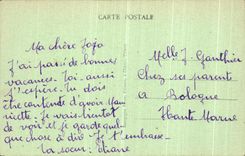 CARTE POSTALE
Ma chère Jojo
J'ai passé de bonnes
vacances. Toi aussi
j'espère. Tu dois
être contente d'avoir
Je vais bientôt
te voir et je garde quel-
que chose à dire. Je t'embrasse.
Ta soeur: Eliane
Melle J. Gauthier
Chez ses parents
a Bologne
Haute Marne